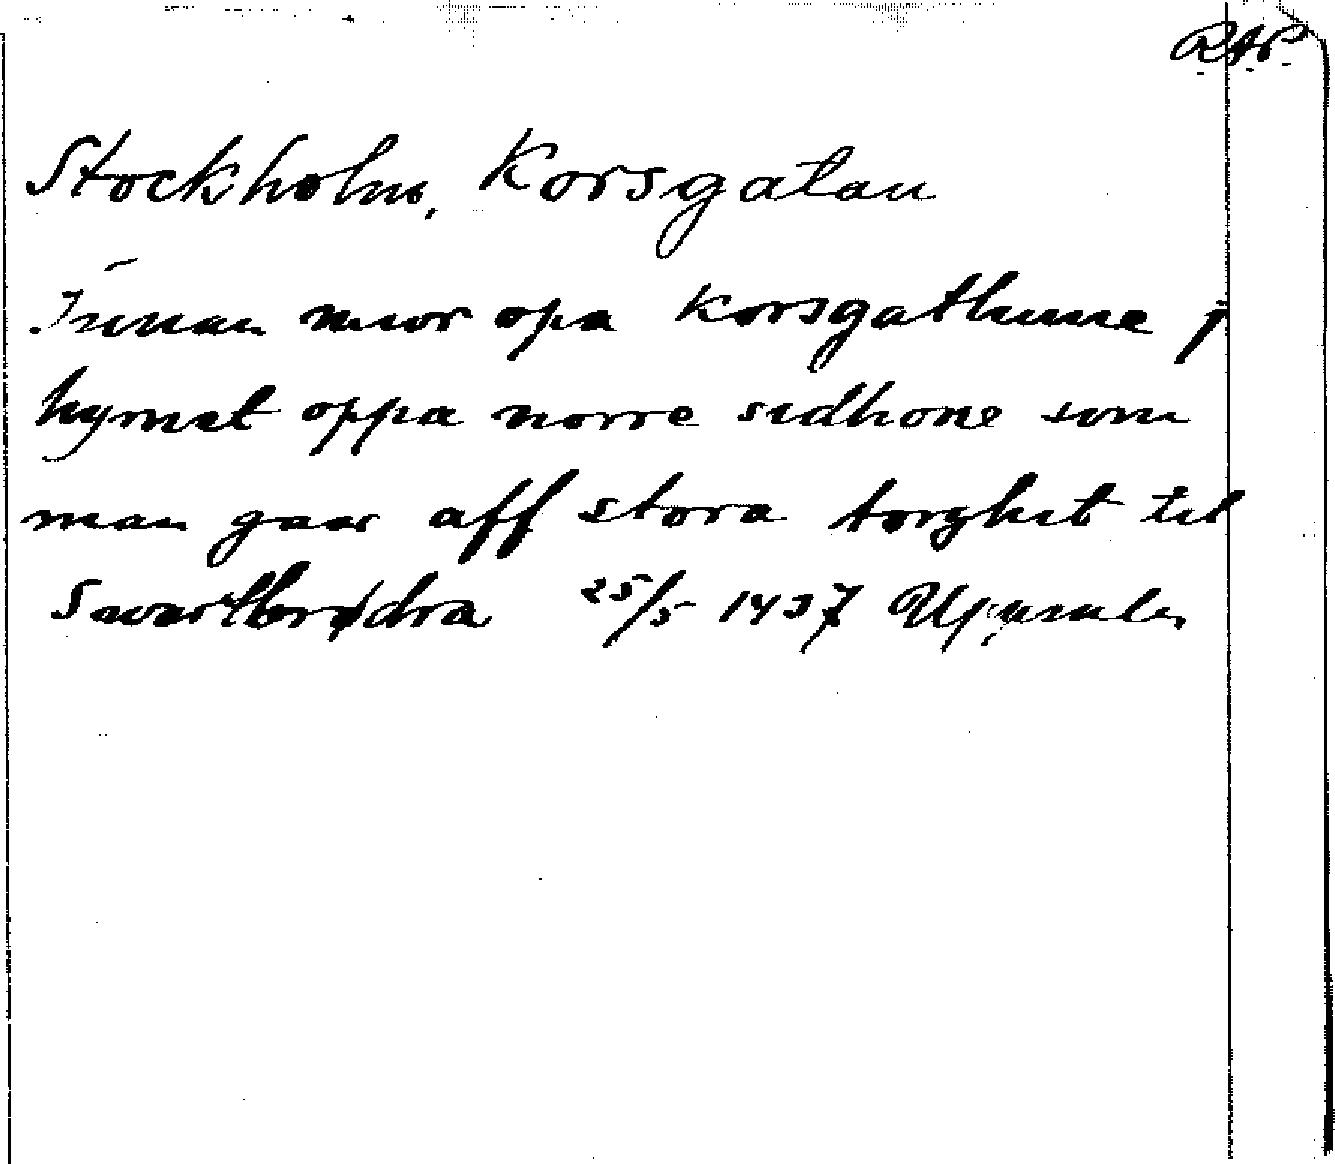 RAP
Stockholm, Korsgatan
Innan mwr opa korsgathunne j
hyrnet oppa norre sidhone som
man gaar aff stora torghit til
Swartbrødra 25/5 1437 Uppsala